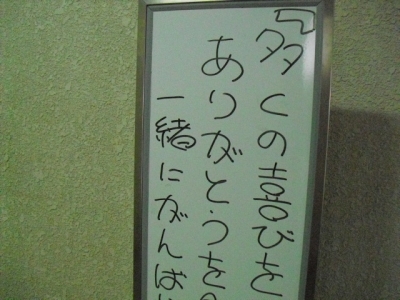 『多くの喜びを
ありがとうを
一緒にがんば